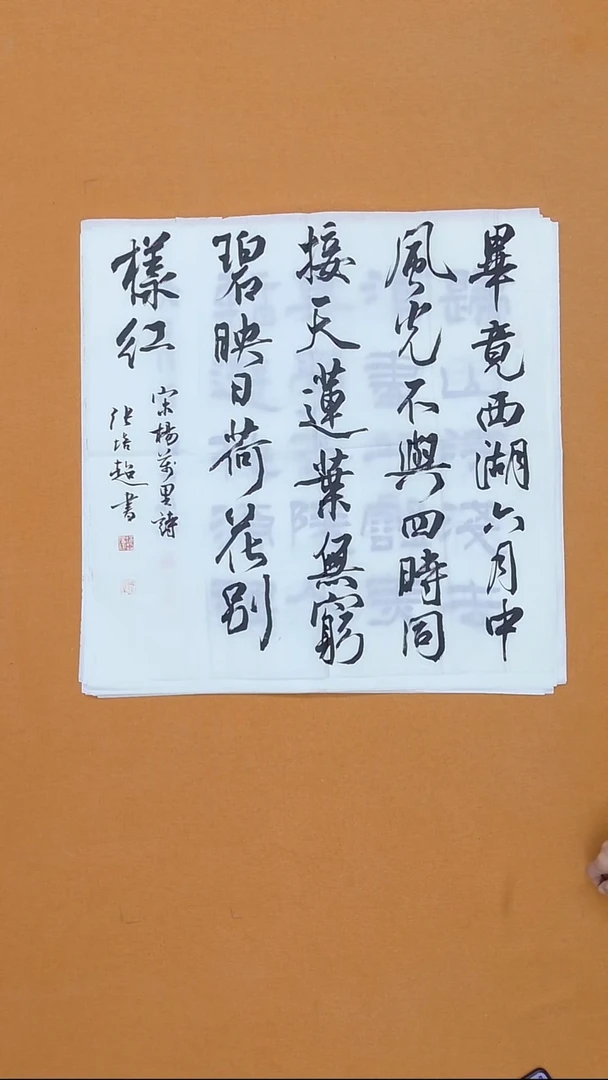 畢竟西湖六月中
風光不與四時同
接天蓮葉無窮
碧映日荷花别
樣紅
宋楊萬里詩
張培超書